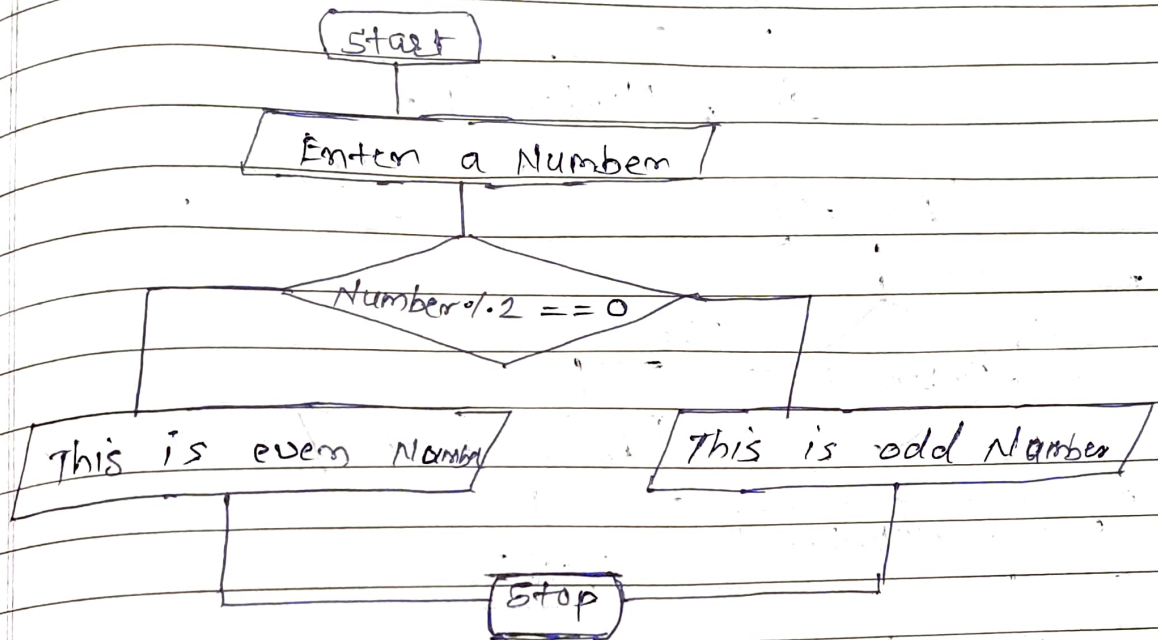 Start
Enter a Number
Number%.2 == 0
This is even Number
This is odd Number
Stop